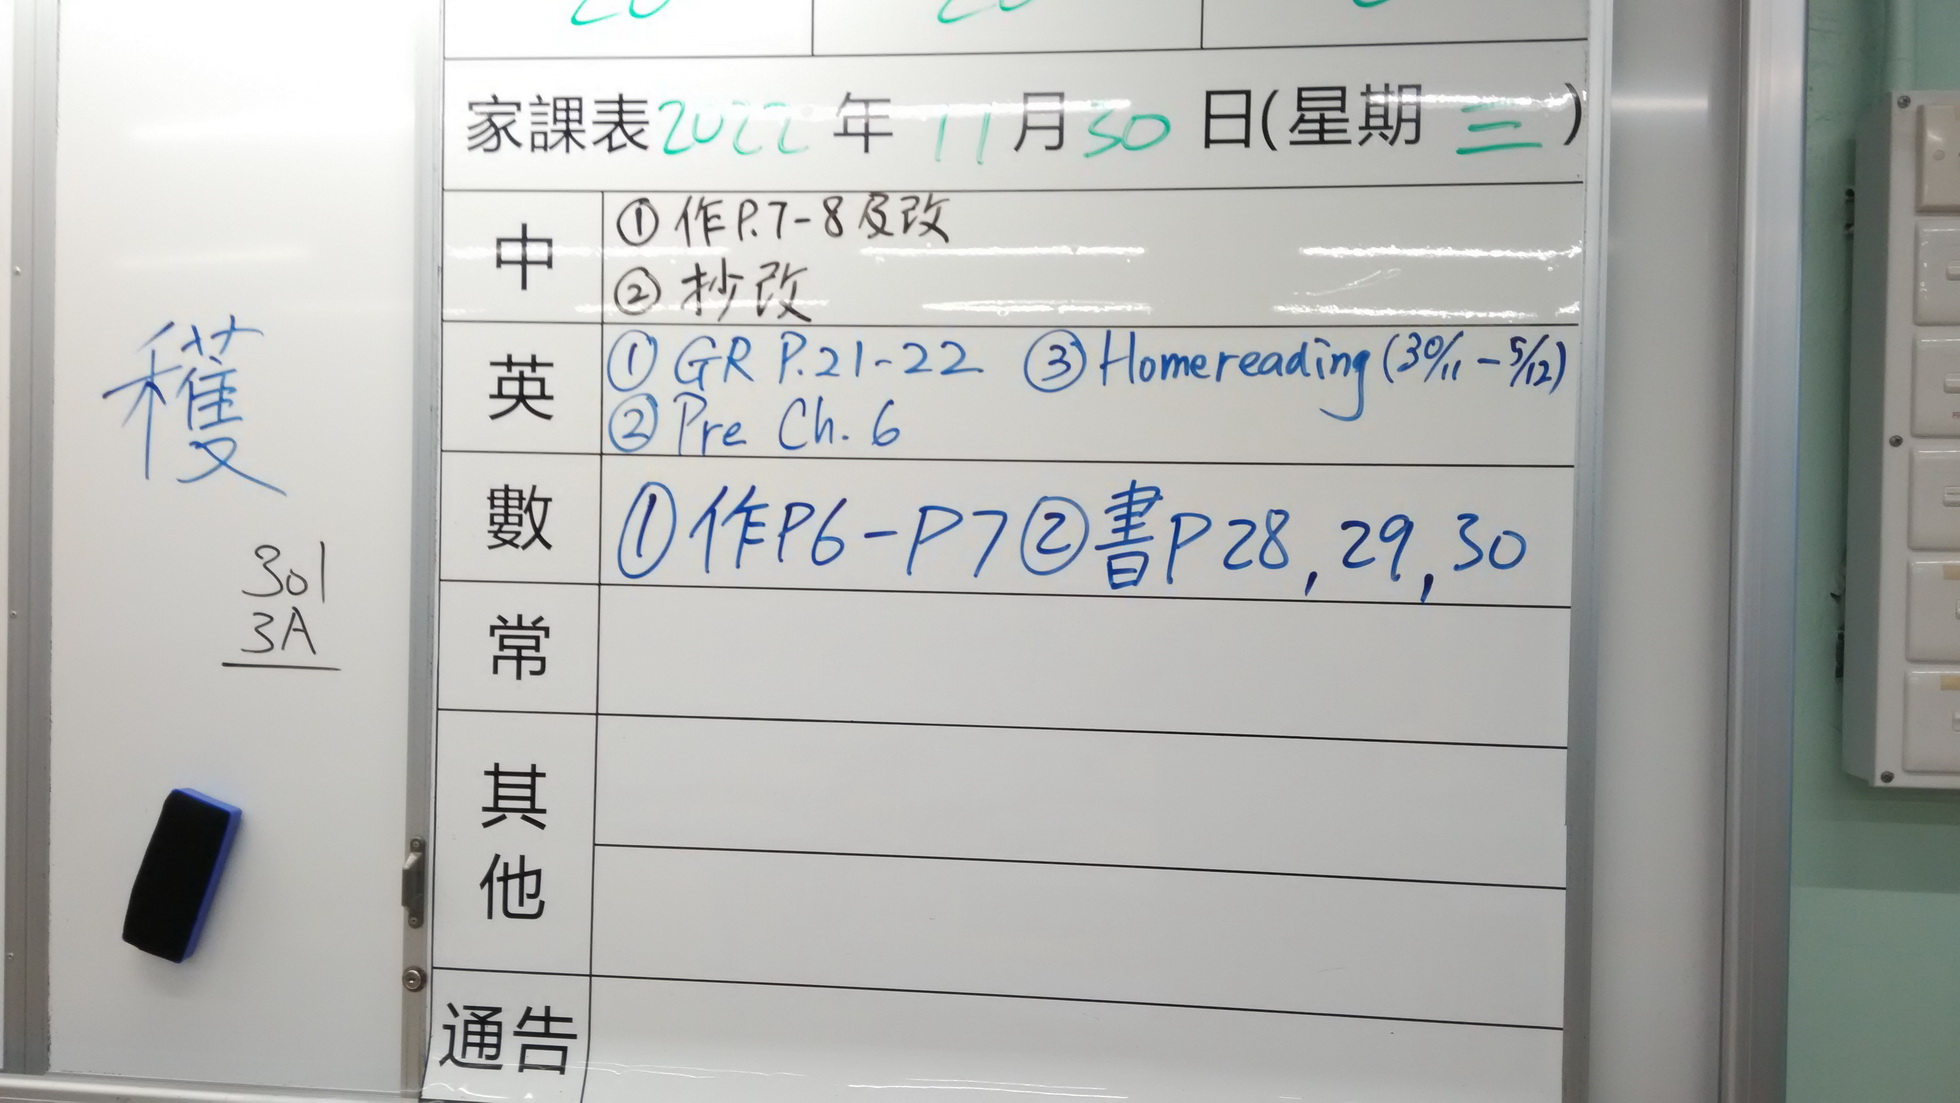 家課表2022年11月30日(星期三)
中
①作P.7-8及改
②抄改
英
①GR P.21-22 ③Homereading(30/11-5/12)
②Pre Ch. 6
數
①作P6-P7②書P28,29,30
常
其
他
通告
穫
301
3A